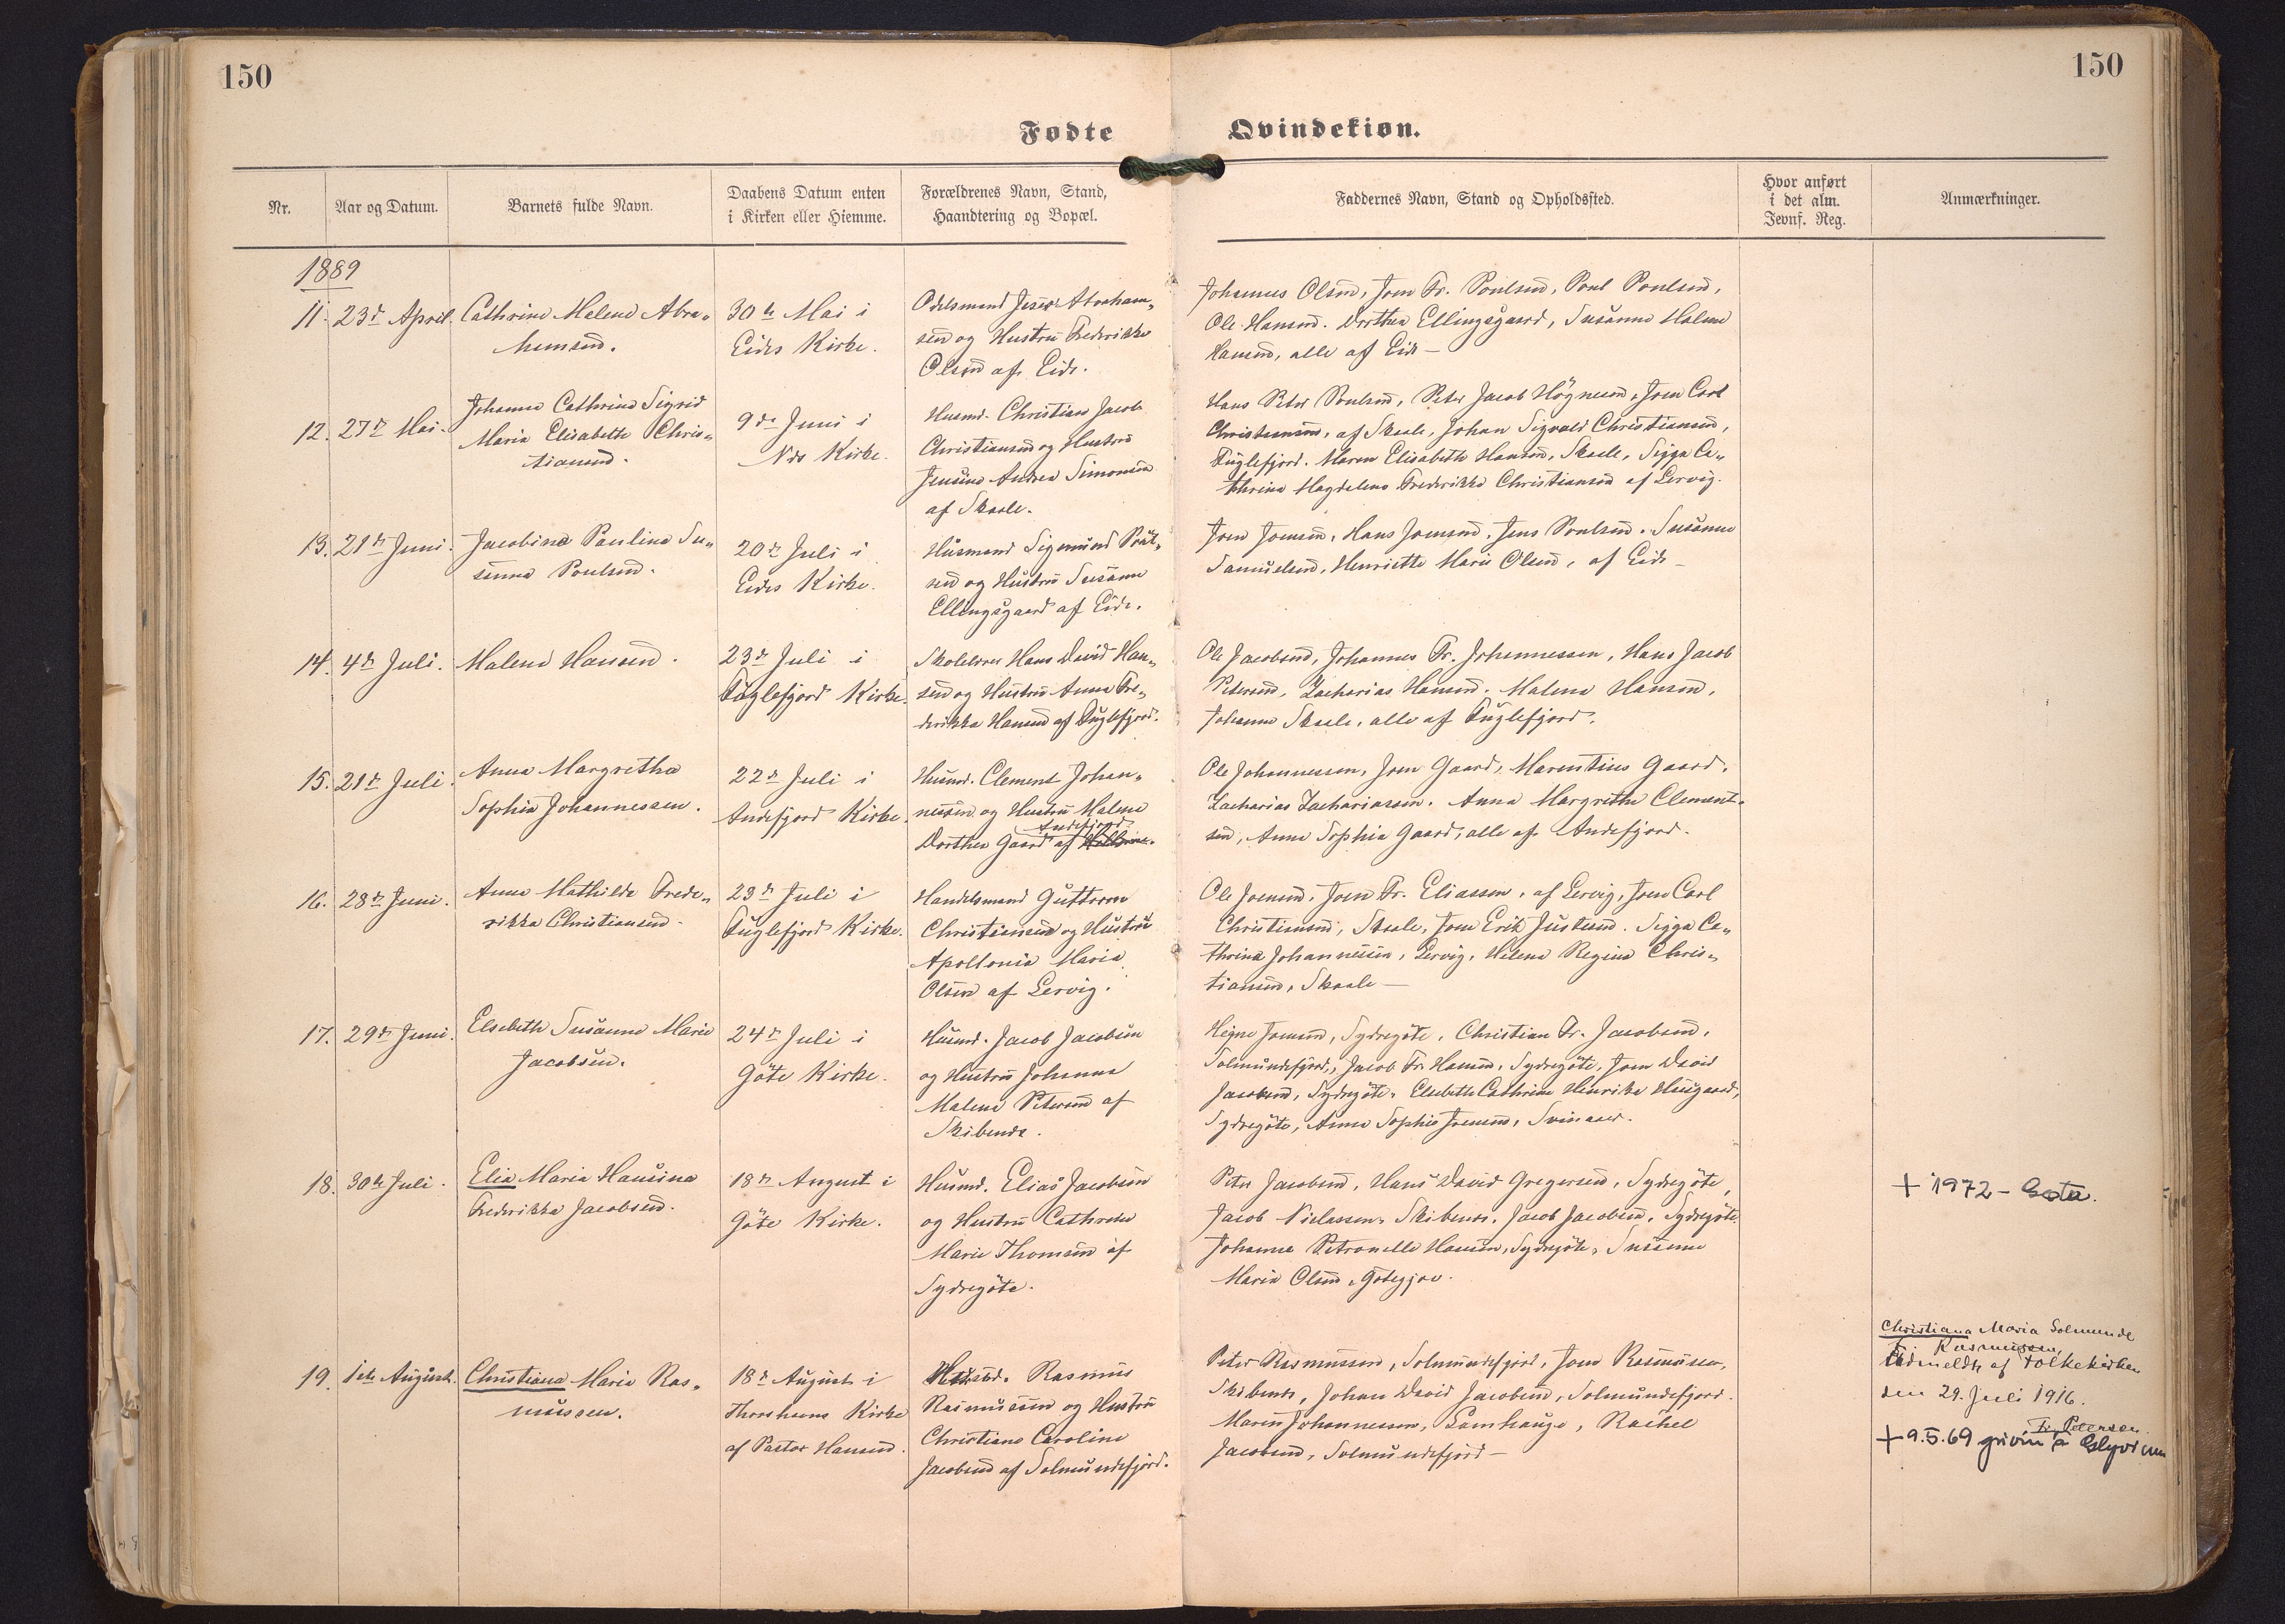 150
150
Fødte Qvindekiøn.
Nr.
Aar og Datum.
Barnets fulde Navn.
Daabens Datum enten
i Kirken eller Hiemme.
Forældrenes Navn, Stand,
Haandtering og Bopæl.
Faddernes Navn, Stand og Opholdssted.
Hvor anført
i det alm.
Jevnf. Reg.
Anmærkninger.
1889
11. 23de April.
Cathrine Malene Abra-
hamsen.
30te Mai i
Eides Kirke.
Odelsmand Abraham-
sen og Hustru Frederikke
Olsen af Eide.
Johannes Olsen, Joen Fr. Poulsen, Poul Poulsen,
Ole Hansen. Dorthea Ellingsgaard, Susanne Malene
Hansen, alle af Eide —
12. 27de Mai.
Johanne Cathrine Sigrid
Maria Elisabeth Chris-
tiansen.
9de Juni i
Nes Kirke.
Husmd. Christian Jacob
Christiansen og Hustru
Jensine Andrea Simonsen
af Skaale.
Hans Peter Poulsen, Peter Jacob Högnesen, Joen Carl
Christiansen, af Skaale, Johan Sigvald Christiansen,
Fuglefjord. Maren Elisabeth Hansen, Skaale, Sigga Ca-
thrine Magdalene Frederikke Christiansen af Lervig.
13. 21de Juni.
Jacobine Pauline Su-
sanna Poulsen.
20de Juli i
Eides Kirke.
Husmand Sigmund Poul-
sen og Hustru Susanne
Ellingsgaard af Eide.
Joen Joensen, Hans Joensen, Jens Poulsen. Susanne
Samuelsen, Henriette Marie Olsen, af Eide —
14. 4de Juli.
Malene Hansen.
23de Juli i
Fuglefjord Kirke.
Skolelærer Hans David Han-
sen og Hustru Anna Fre-
derikke Hansen af Fuglefjord.
Ole Jacobsen, Johannes Fr. Johannessen, Hans Jacob
Petersen, Zacharias Hansen. Malene Hansen,
Johanne Skaale, alle af Fuglefjord.
15. 21de Juli.
Anna Margretha
Sophia Johannessen.
22de Juli i
Andefjord Kirke.
Husmd. Clement Johan-
nessen og Hustru Malene
Andefjord
Dorthea Gaard af
Ole Johannessen, Joen Gaard, Marentius Gaard,
Zacharias Zachariassen. Anna Margrethe Clement-
sen, Anna Sophia Gaard, alle af Andefjord.
16. 28de Juni.
Anna Mathilde Frede-
rikka Christiansen.
23de Juli i
Fuglefjord Kirke.
Handelsmand Guttorm
Christiansen og Hustru
Apollonia Maria
Olsen af Lervig.
Ole Joensen, Joen Fr. Eliassen, af Lervig, Joen Carl
Christiansen, Skaale, Joen Erik Justesen. Sigga Ca-
thrina Johannessen, Lervig, Helene Regine Chris-
tiansen, Skaale —
17. 29de Juni.
Elsebeth Susanne Marie
Jacobsen.
24de Juli i
Göte Kirke.
Husmd. Jacob Jacobsen
og Hustru Johanna
Malene Petersen af
Skibenæs.
Heine Joensen, Sydregöte, Christian Fr. Jacobsen,
Solmundefjord, Jacob Fr. Hansen, Sydregöte, Joen David
Jacobsen, Sydregöte, Elsebeth Cathrine Henrikke Haugaard,
Sydregöte, Anna Sophie Joensen, Svinaaer.
18. 30te Juli.
Elia Maria Hansina
Frederikka Jacobsen.
18de August i
Göte Kirke.
Husmd. Elias Jacobsen
og Hustru Cathrine
Marie Thomsen af
Sydregöte.
Peter Jacobsen, Hans David Gregersen, Sydregöte,
Jacob Niclassen, Skibenæs, Jacob Jacobsen, Sydregöte.
Johanna Petronelle Hansen, Sydregöte, Susanne
Maria Olsen, Götegjov.
+ 1972 - Gøta.
19. 1ste August.
Christiana Maria Ras-
mussen.
18de August i
Thorshavns Kirke
af Pastor Hansen.
Husmd. Rasmus
Rasmussen og Hustru
Christiane Caroline
Jacobsen af Solmundefjord.
Peter Rasmussen, Solmundefjord, Joen Rasmussen,
Skibenæs, Johan David Jacobsen, Solmundefjord.
Maren Johannessen, Lamhauge, Rachel
Jacobsen, Solmundefjord —
Christiana Maria Solmunde
Rasmussen
Udmeldt af Folkekirken
den 29. Juli 1916.
Fr. Petersen.
+ 9.5.69 grivin á Glyvrum